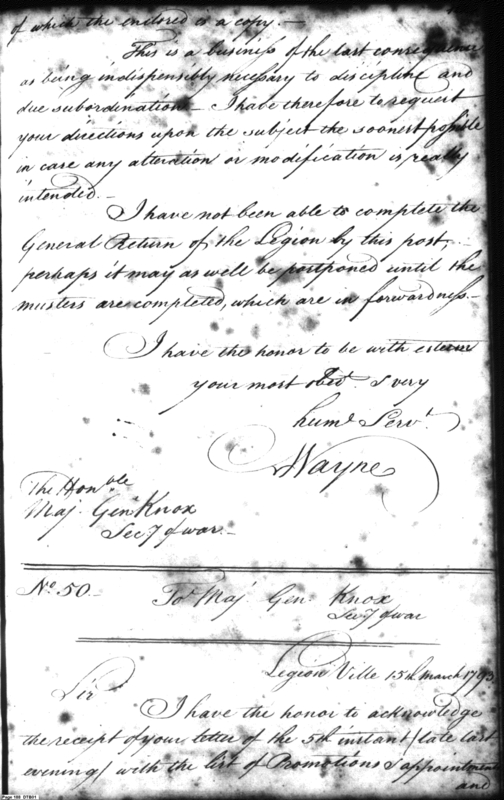 of which the enclosed is a copy.—
This is a business of the last consequence
as being indispensibly necessary to discipline and
due subordination— I have therefore to request
your directions upon the subject the soonest possible
in case any alteration or modification is really
intended.—
I have not been able to complete the
General Return of the Legion by this post,
perhaps it may as well be postponed until the
musters are completed, which are in forwardness.—
I have the honor to be with esteem
your most obedt. & very
huml. Servt.
Wayne
The Honble
Maj. Genl. Knox
Secy of war—
No. 50.
To Maj. Gen. Knox
Secy of war
Legion Ville 15th March 1793
Sir
I have the honor to acknowledge
the receipt of your letter of the 5th instant (late last
evening) with the list of Promotions & appointments
and
Page 168 DTB01